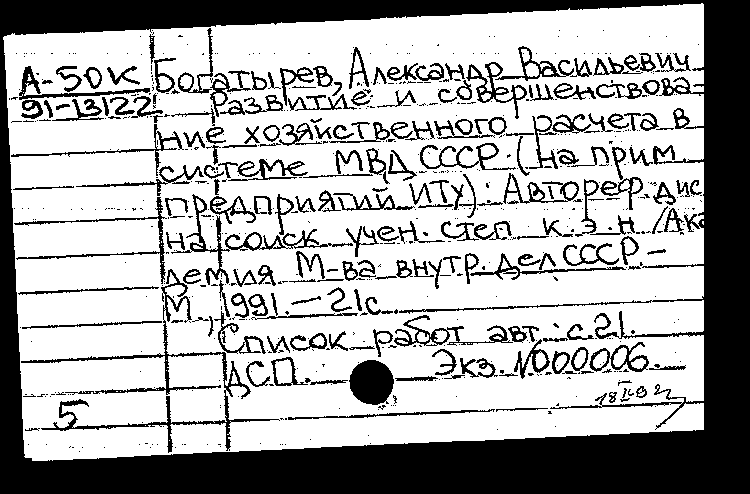 А-50К Богатырев, Александр Васильевич
91-13122 Развитие и совершенствова=
ние хозяйственного расчета в
системе МВД СССР. (На прим.
предприятий ИТУ): Автореф. дис
на соиск учен. степ к.э.н /Ака
демия М-ва внутр. дел СССР. –
М., 1991. – 21с
Список работ авт.: с.21.
ДСП. Экз. N000006.
5